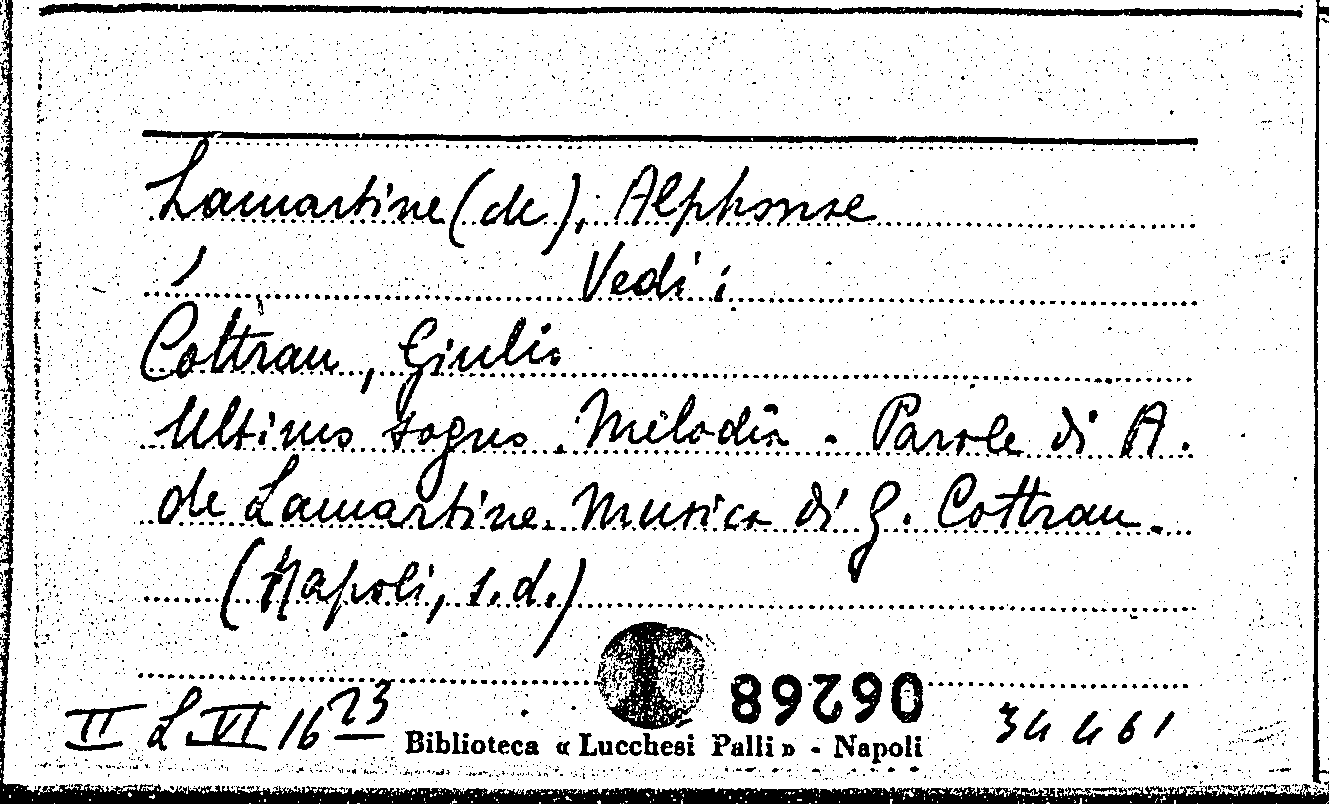 Lamartine (de), Alphonse
Vedi:
Cottrau, Giulio
Ultimo sogno. Melodia. Parole di A.
de Lamartine. Musica di G. Cottrau.
(Napoli, s.d.)
06268
II L.VI 16 23 34461
Biblioteca « Lucchesi Palli » - Napoli